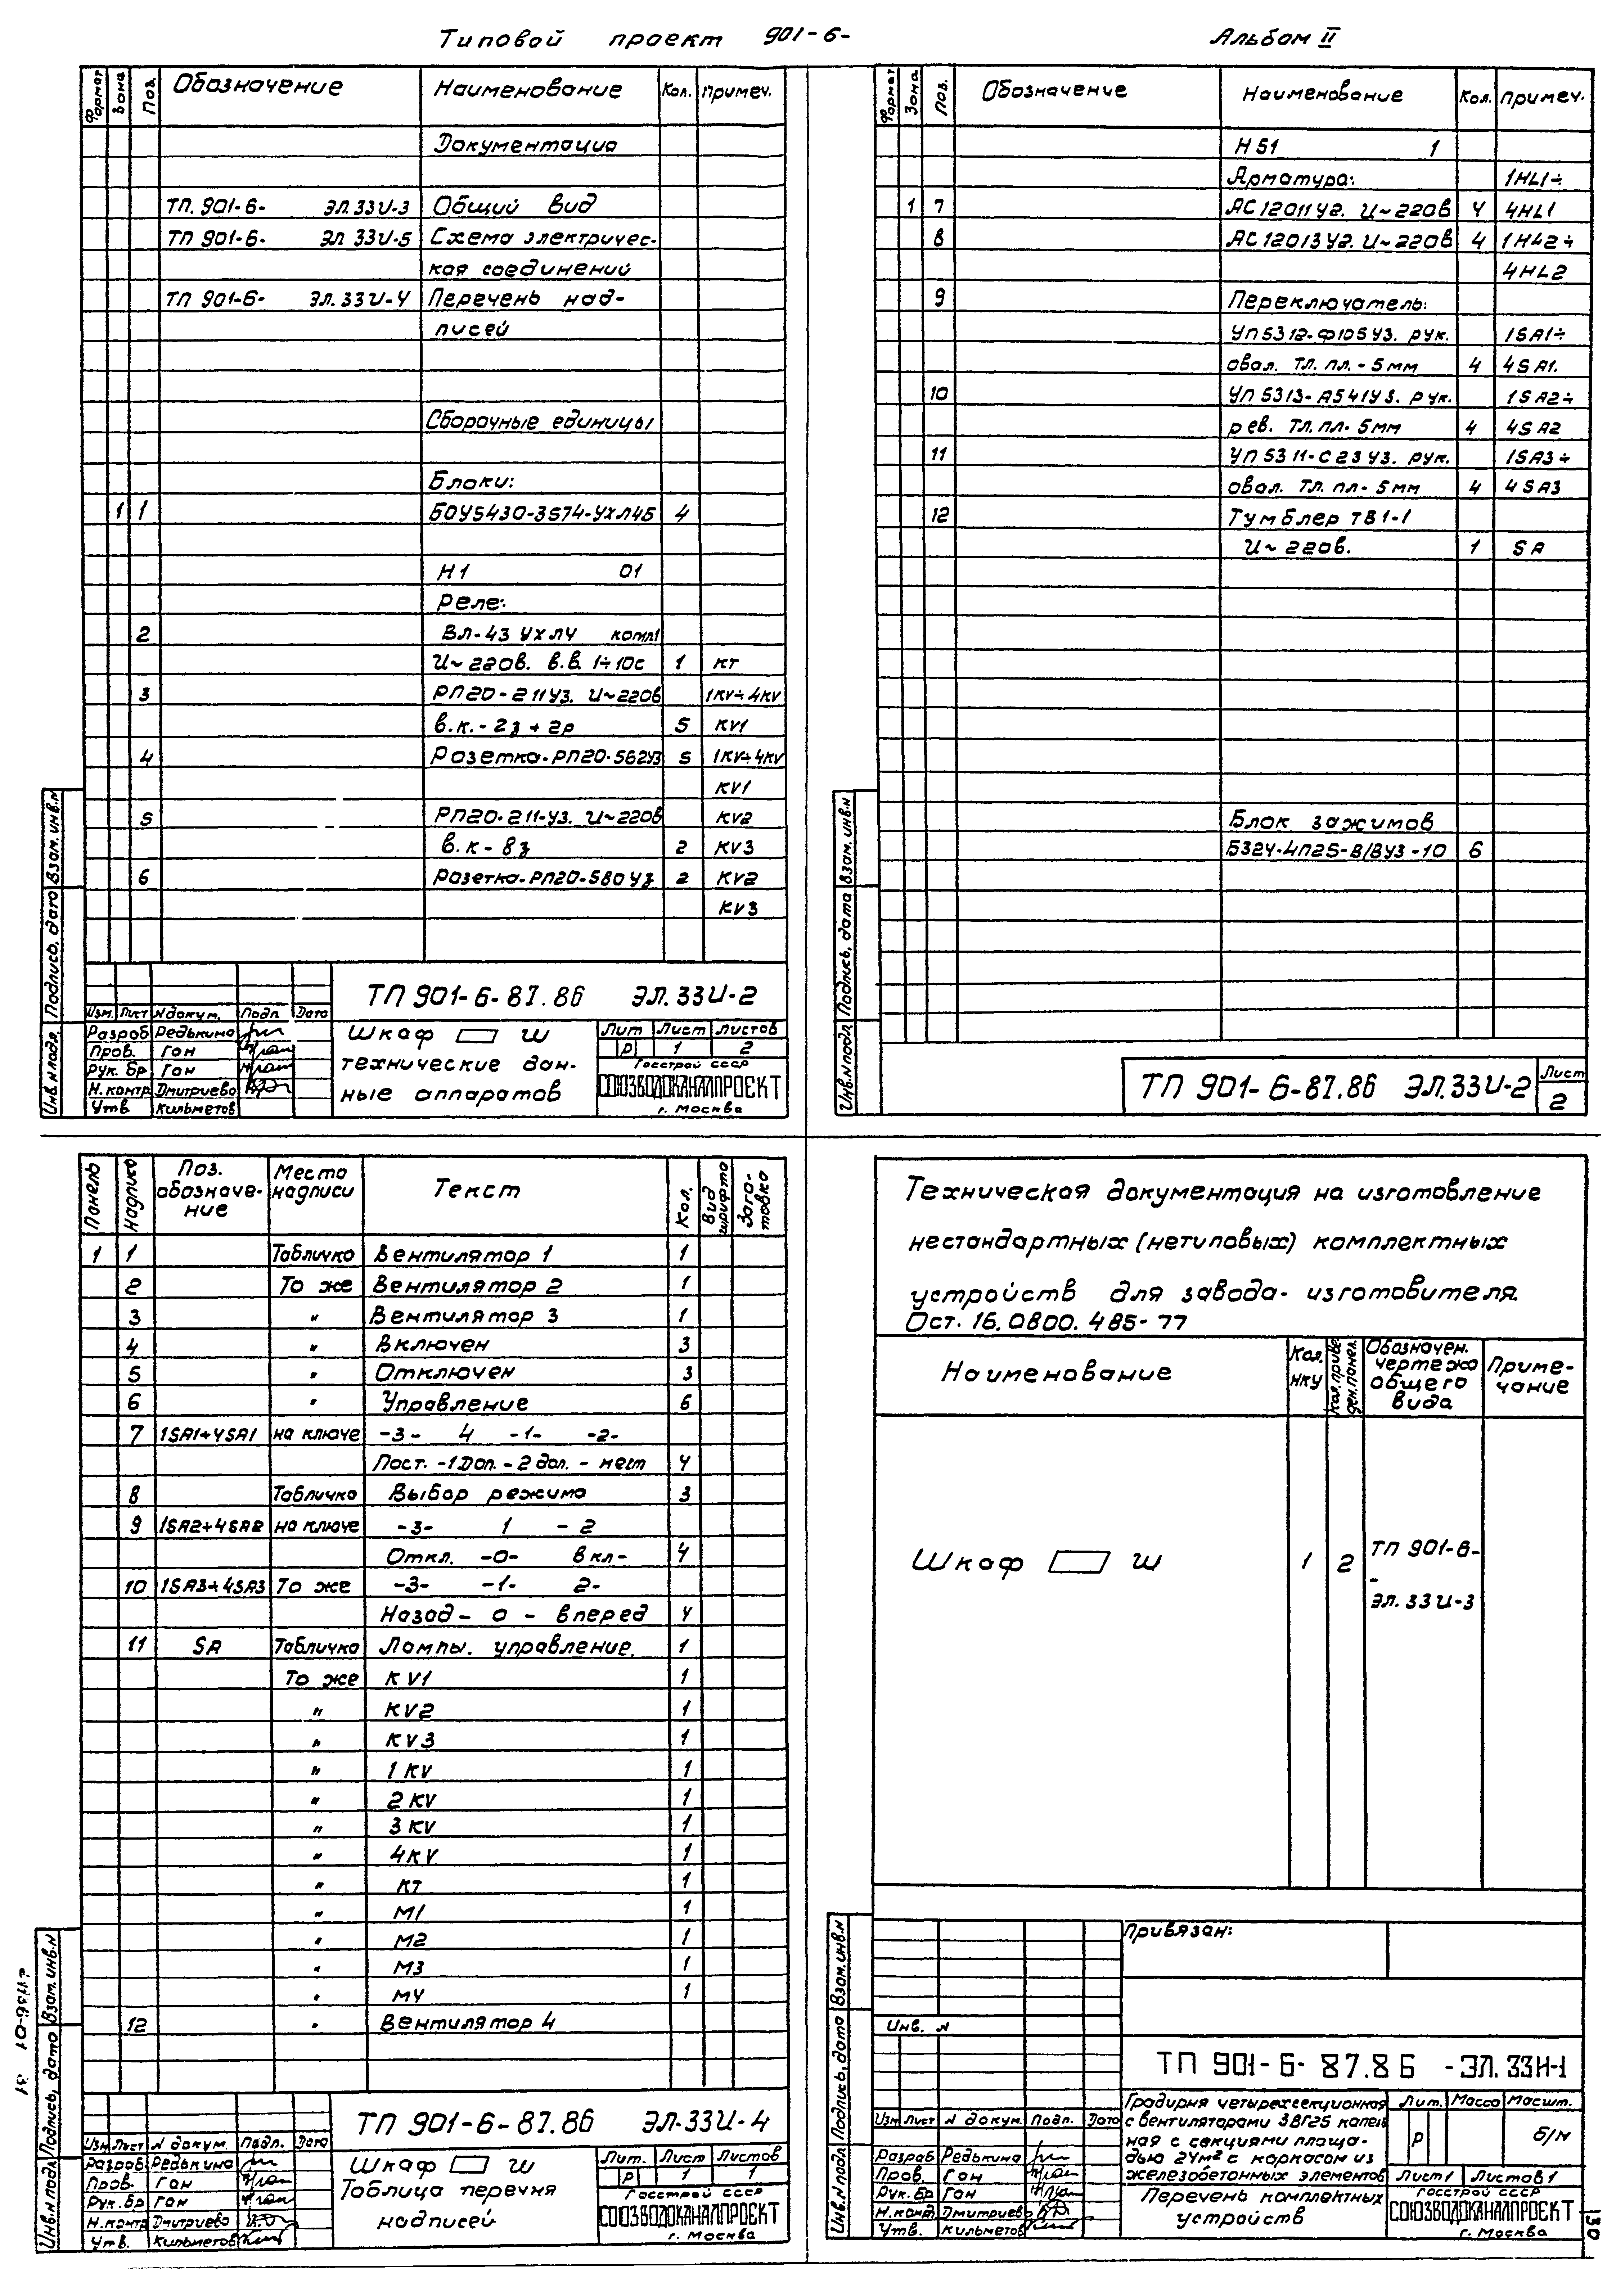 Типовой проект 901-6-
Альбом II
Формат Зона Поз. Обозначение Наименование Кол. Примеч.
Документация
ТП.901-6- ЭЛ.33И-3 Общий вид
ТП 901-6- ЭЛ 33И-5 Схема электричес-
кая соединений
ТП 901-6- ЭЛ.33И-4 Перечень над-
писей
Сборочные единицы
Блоки:
1 1 БОУ5430-3574-УХЛ4Б 4
Н1 01
Реле:
2 ВЛ-43 УХЛ4 компл
И~220в. в.в. 1÷10с 1 КТ
3 РП20-211У3. И~220в 1KV÷4KV
в.к.-2з+2р 5 KV1
4 Розетка-РП20-562У3 5 1KV÷4KV
KV1
5 РП20-211-У3. И~220в KV2
в.к-8з 2 KV3
6 Розетка-РП20-580У3 2 KV2
KV3
Взам. инв.н
Подпись, дата
Инв.н подл.
ТП 901-6-87.86 ЭЛ.33И-2
Изм. Лист N докум. Подп. Дата
Разраб Редькина
Пров. Ган
Рук. бр Ган
Н.контр Дмитриева
Утв. Кильметов
Шкаф Ш
технические дан-
ные аппаратов
Лит Лист Листов
Р 1 2
Госстрой СССР
СОЮЗВОДОКАНАЛПРОЕКТ
г. Москва
Формат Зона Поз. Обозначение Наименование Кол. Примеч.
Н51 1
Арматура: 1HL1÷
1 7 АС12011У2. И~220в 4 4HL1
8 АС12013У2. И~220в 4 1HL2÷
4HL2
9 Переключатель:
УП5312-Ф105У3. рук. 1SA1÷
овал. тл. пл.-5мм 4 4SA1.
10 УП5313-А541У3. рук. 1SA2÷
рев. тл.пл-5мм 4 4SA2
11 УП5311-С23У3. рук. 1SA3÷
овал. тл. пл-5мм 4 4SA3
12 Тумблер ТВ1-1
И~220в. 1 SA
Блок зажимов
БЗ24-4П25-В/ВУ3-10 6
Взам. инв.н
Подпись, дата
Инв.н подл
ТП 901-6-87.86 ЭЛ.33И-2
Лист
2
Панель Надпись Поз. обозначе-ние Место надписи Текст Кол. Вид шрифта Заго-товка
1 1 Табличка Вентилятор 1 1
2 То же Вентилятор 2 1
3 " Вентилятор 3 1
4 " Включен 3
5 " Отключен 3
6 " Управление 6
7 1SA1÷4SA1 на ключе -3- 4 -1- -2-
Пост. -1Доп.-2доп. - мест 4
8 Табличка Выбор режима 3
9 1SA2÷4SA2 на ключе -3- 1 -2
Откл. -0- вкл- 4
10 1SA3÷4SA3 То же -3- -1- 2-
Назад - 0 - вперед 4
11 SA Табличка Лампы. управление. 1
То же KV1 1
" KV2 1
" KV3 1
" 1KV 1
" 2KV 1
" 3KV 1
" 4KV 1
" КТ 1
" М1 1
" М2 1
" М3 1
" М4 1
12 " Вентилятор 4
Взам.инв.н
Подпись, дата
Инв.н подл
31
ТП 901-6-87.86 ЭЛ.33И-4
Изм Лист N докум. Подп. Дата
Разраб. Редькина
Пров. Ган
Рук.бр Ган
Н.контр Дмитриева
Утв. Кильметов
Шкаф Ш
Таблица перечня
надписей
Лит. Лист Листов
Р 1 1
Госстрой СССР
СОЮЗВОДОКАНАЛПРОЕКТ
г. Москва
Техническая документация на изготовление
нестандартных (нетиповых) комплектных
устройств для завода-изготовителя.
Ост. 16.0800.485-77
Наименование Кол. НКУ Обозначен. чертежа общего вида Приме-чание
Шкаф Ш 1 2 ТП 901-6-
-
ЭЛ.33И-3
Привязан:
Инв. N
Взам.инв.н
Подпись, дата
Инв.N подл
ТП 901-6-87.86 -ЭЛ.33И-1
Изм Лист N докум. Подп. Дата
Разраб Редькина
Пров. Ган
Рук.бр Ган
Н.конт Дмитриева
Утв. Кильметов
Градирня четырехсекционная
с вентиляторами 3ВГ25 капель
ная с секциями площа-
дью 24м² с каркасом из
железобетонных элементов
Перечень комплектных
устройств
Лит. Масса Масшт.
Р б/м
Лист 1 Листов 1
Госстрой СССР
СОЮЗВОДОКАНАЛПРОЕКТ
г. Москва
130